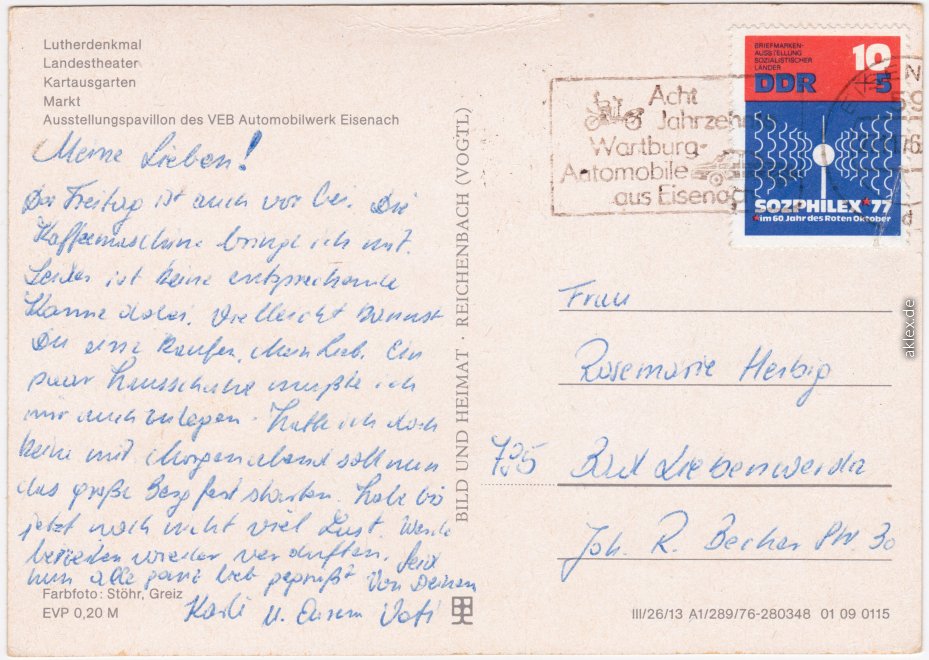 Lutherdenkmal
Landestheater
Kartausgarten
Markt
Ausstellungspavillon des VEB Automobilwerk Eisenach
Meine Lieben!
Der Freitag ist auch vorbei. Die
Kaffeemaschine bringe ich mit.
Leider ist keine entsprechende
Kanne dabei. Vielleicht kannst
Du eine kaufen, mein Lieb. Ein
paar Hausschuhe mußte ich
mir auch zulegen. Hatte ich doch
keine mit. Morgen abend soll nun
das große Bergfest starten. Habe bis
jetzt noch nicht viel Lust. Werde
beizeiten wieder verduften. Seid
nun alle ganz lieb gegrüßt von Deinem
Karli u. Eurem Vati
Farbfoto: Stöhr, Greiz
EVP 0,20 M
BILD UND HEIMAT · REICHENBACH (VOGTL)
Acht
Jahrzehn
Wartburg-
Automobile
aus Eisenach
BRIEFMARKEN-
AUSSTELLUNG
SOZIALISTISCHER
LÄNDER
10
+5
DDR
SOZPHILEX*77
*im 60 Jahr des Roten Oktober
EISEN
59
76
d
Frau
Rosemarie Herbig
795 Bad Liebenwerda
Joh. R. Becher Str 30
III/26/13 A1/289/76-280348 01 09 0115
aklex.de